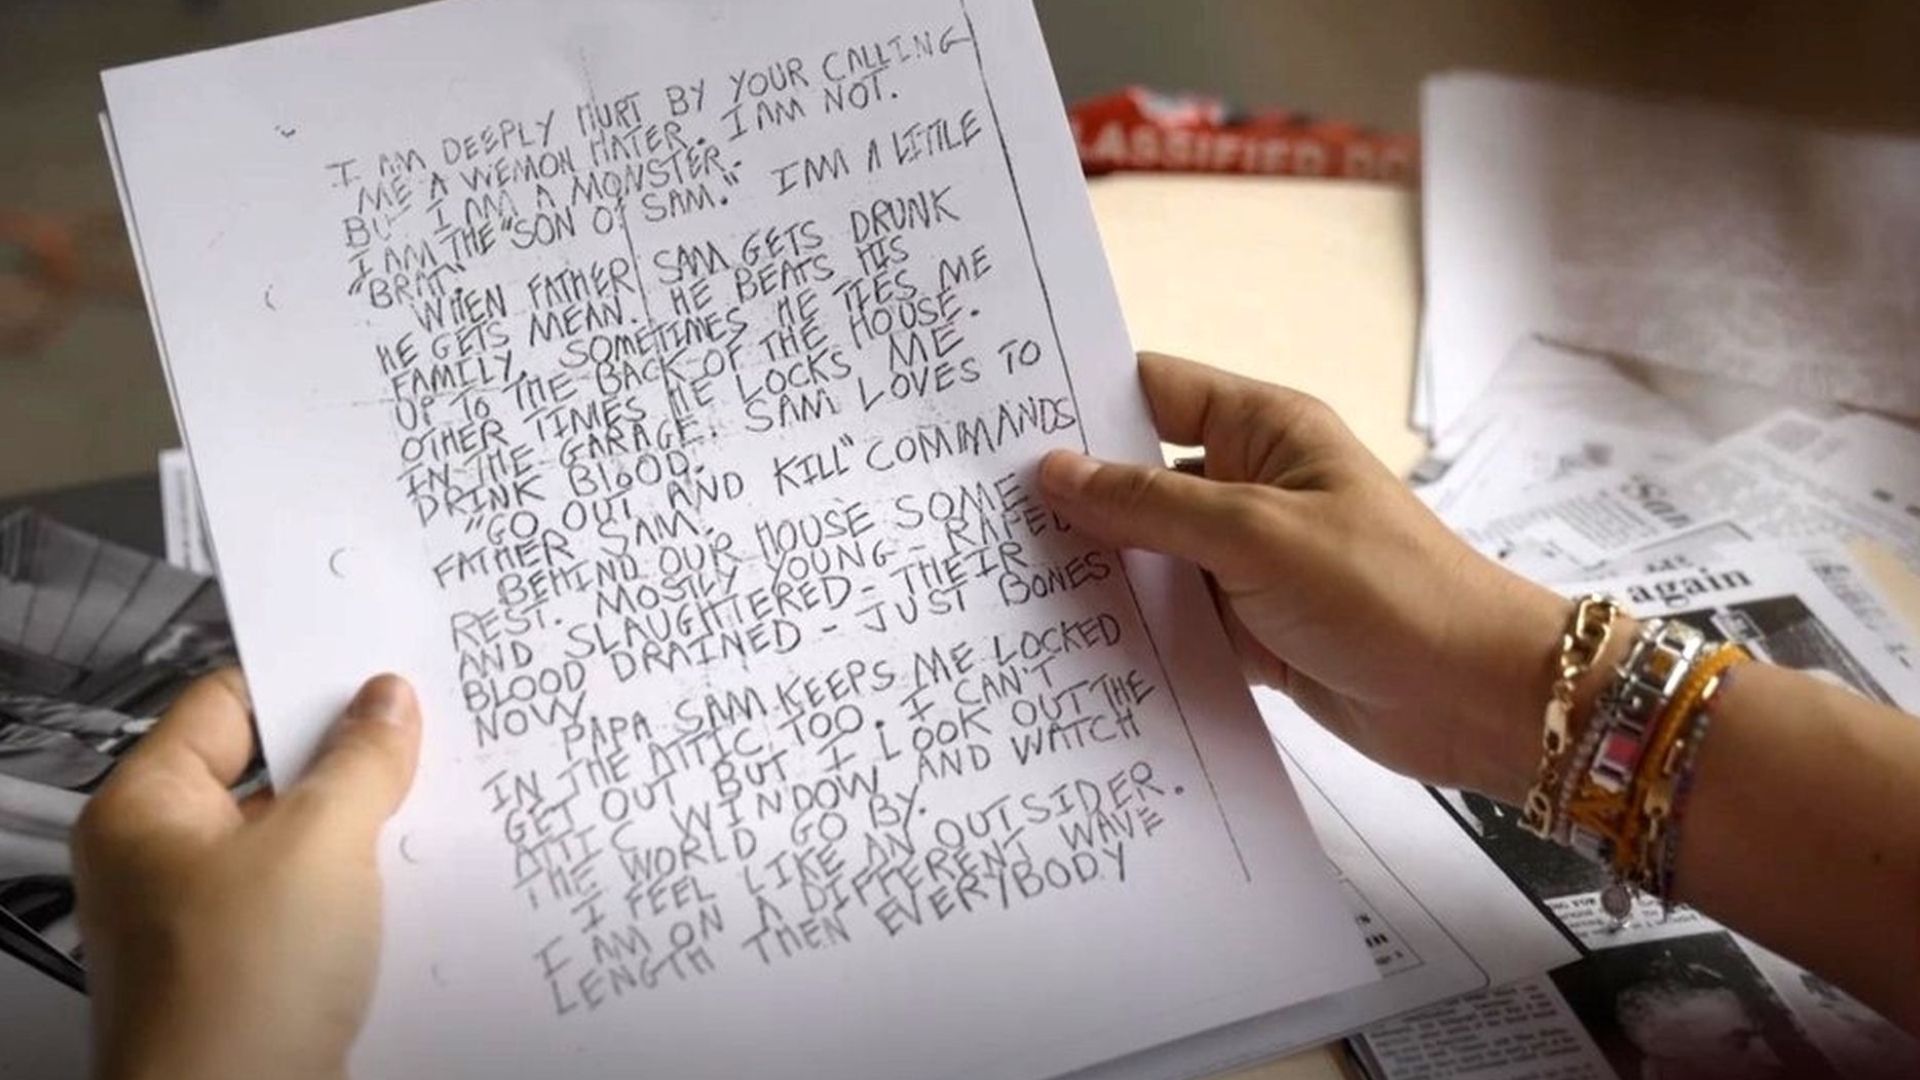 I AM DEEPLY HURT BY YOUR CALLING
ME A WEMON HATER. I AM NOT.
BUT I AM A MONSTER.
I AM THE "SON OF SAM." I AM A LITTLE
"BRAT".
WHEN FATHER SAM GETS DRUNK
HE GETS MEAN. HE BEATS HIS
FAMILY. SOMETIMES HE TIES ME
UP TO THE BACK OF THE HOUSE.
OTHER TIMES HE LOCKS ME
IN THE GARAGE. SAM LOVES TO
DRINK BLOOD.
"GO OUT AND KILL" COMMANDS
FATHER SAM.
BEHIND OUR HOUSE SOME
REST. MOSTLY YOUNG - RAPED
AND SLAUGHTERED - THEIR
BLOOD DRAINED - JUST BONES
NOW
PAPA SAM KEEPS ME LOCKED
IN THE ATTIC TOO. I CAN'T
GET OUT BUT I LOOK OUT THE
ATTIC WINDOW AND WATCH
THE WORLD GO BY.
I FEEL LIKE AN OUTSIDER.
I AM ON A DIFFERENT WAVE
LENGTH THEN EVERYBODY
again